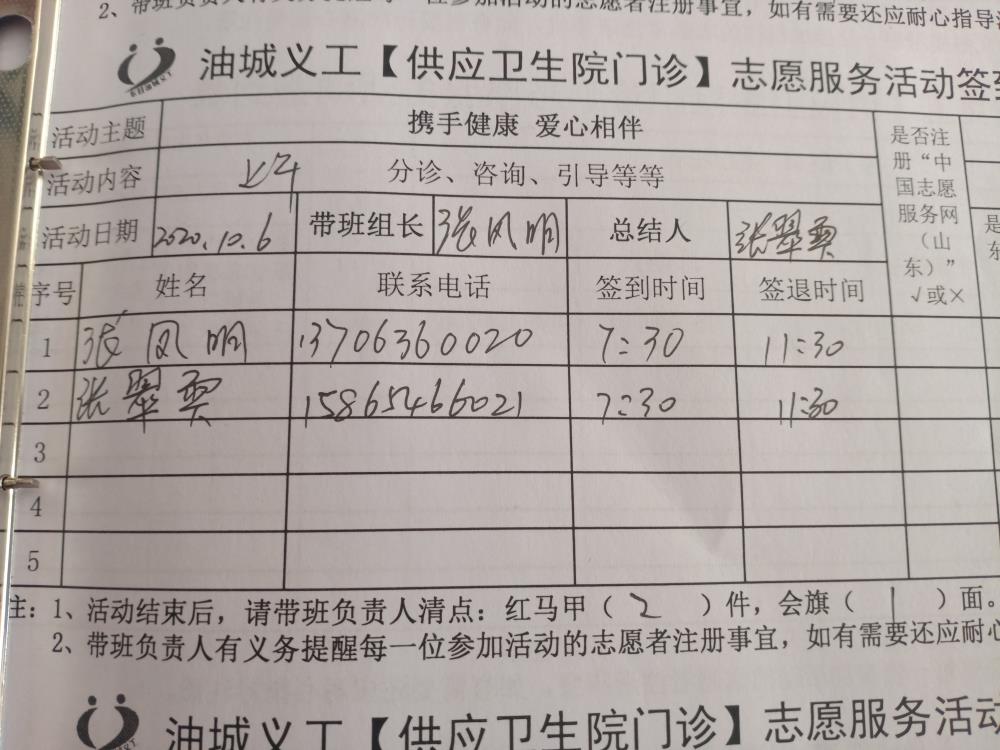 2、带班负责人有义务提醒每一位参加活动的志愿者注册事宜，如有需要还应耐心指导
油城义工【供应卫生院门诊】志愿服务活动签到
活动主题 携手健康 爱心相伴
活动内容 上午 分诊、咨询、引导等等
活动日期 2020.10.6 带班组长 张凤明 总结人 张翠
是否注册“中国志愿服务网（山东）”√或×
序号 姓名 联系电话 签到时间 签退时间
1 张凤明 13706360020 7:30 11:30
2 张翠 15865466021 7:30 11:30
3
4
5
注：1、活动结束后，请带班负责人清点：红马甲（2）件，会旗（1）面。
2、带班负责人有义务提醒每一位参加活动的志愿者注册事宜，如有需要还应耐心
油城义工【供应卫生院门诊】志愿服务活动